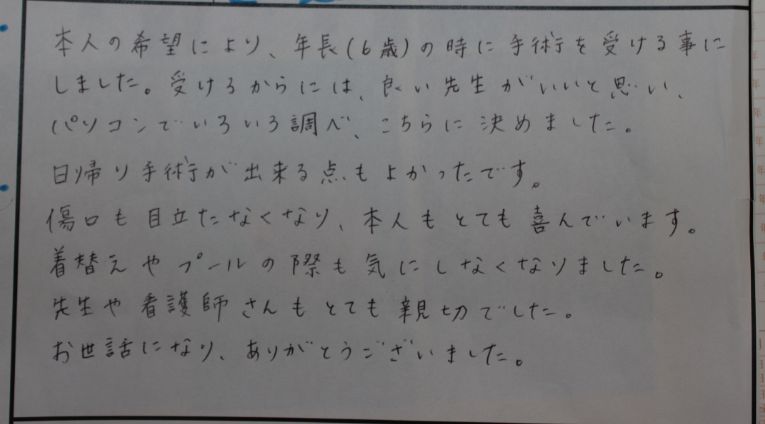 本人の希望により、年長(6歳)の時に手術を受ける事に
しました。受けるからには、良い先生がいいと思い、
パソコンでいろいろ調べ、こちらに決めました。
日帰り手術が出来る点もよかったです。
傷口も目立たなくなり、本人もとても喜んでいます。
着替えやプールの際も気にしなくなりました。
先生や看護師さんもとても親切でした。
お世話になり、ありがとうございました。